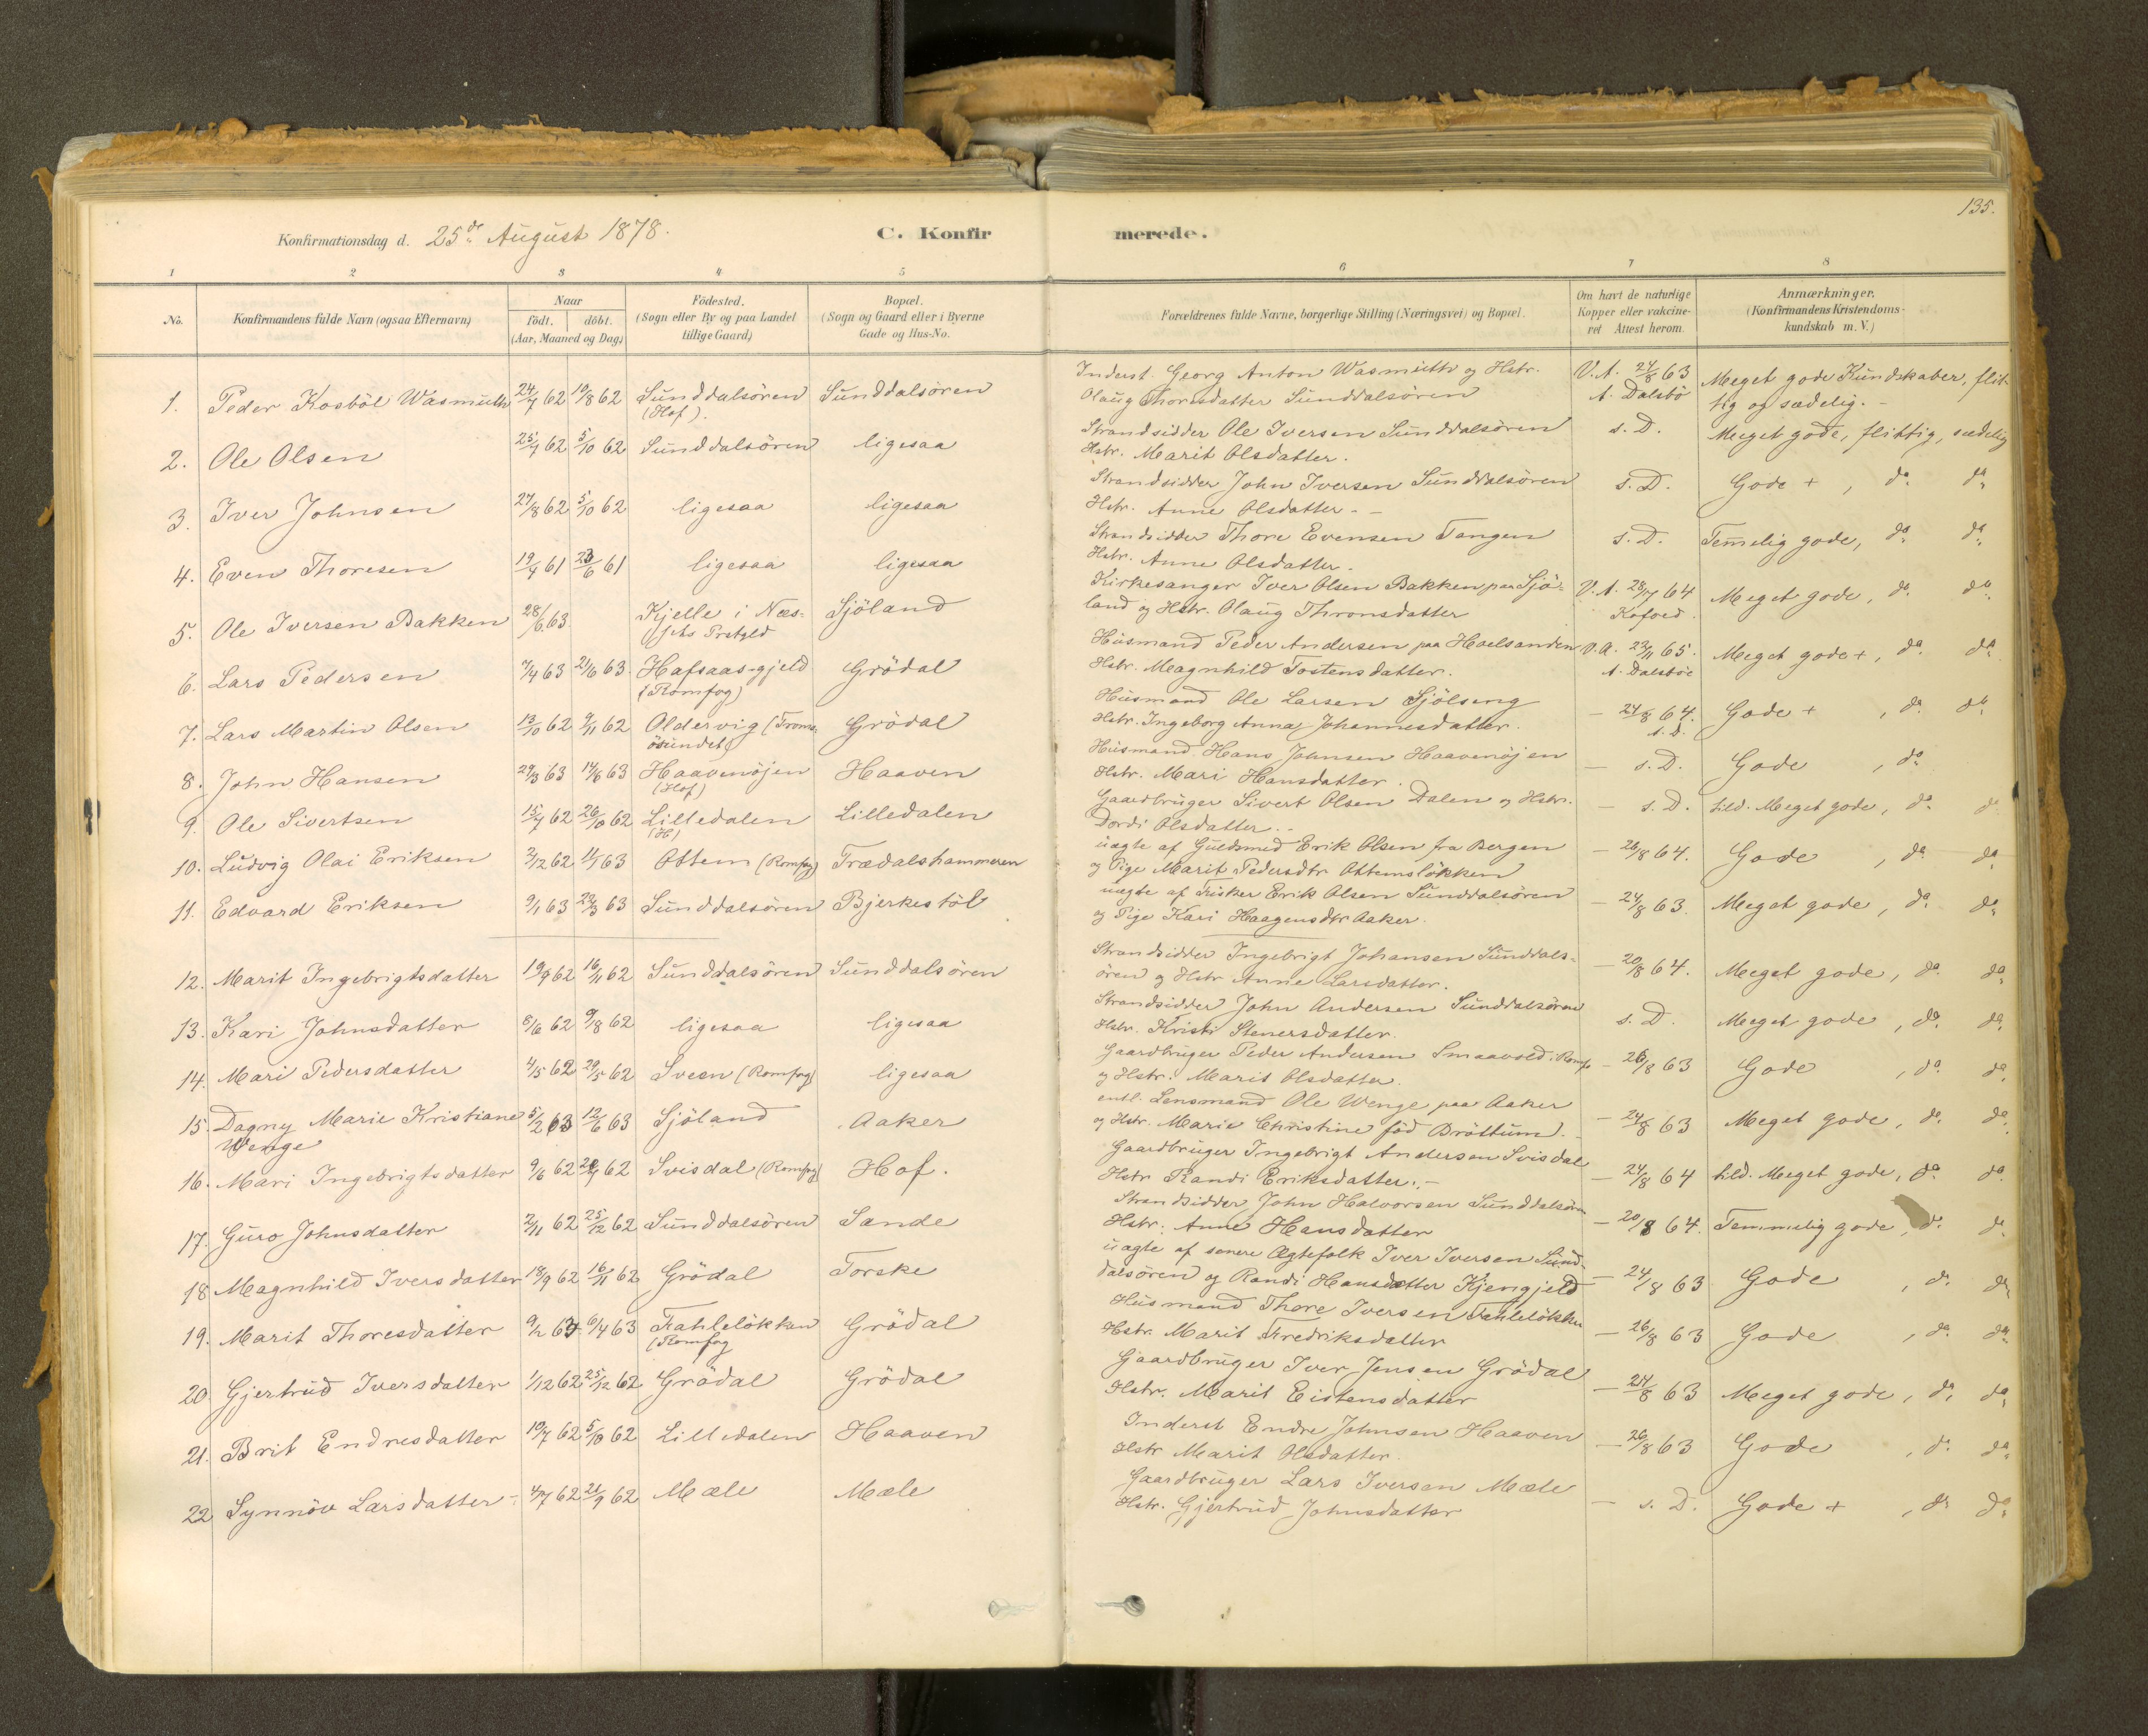 135.
Konfirmationsdag d. 25de August 1878. C. Konfirmerede.
1 2 3 4 5 6 7 8
No. Konfirmandens fulde Navn (ogsaa Efternavn) Naar födt. döbt. (Aar, Maaned og Dag) Födested. (Sogn eller By og paa Landet tillige Gaard) Bopæl. (Sogn og Gaard eller i Byerne Gade og Hus-No. Forældrenes fulde Navne, borgerlige Stilling (Næringsvei) og Bopæl. Om havt de naturlige Kopper eller vakcineret Attest herom. Anmærkninger. (Konfirmandens Kristendomskundskab m. V.)
1. Peder Kosböl Wasmuth 24/7 62 10/8 62 Sunddalsören (Hof). Sunddalsören Inderst. Georg Anton Wasmuth og Hstr. Olaug Thoresdatter Sunddalsören V.A. 24/8 63 A. Dalsbö Meget gode Kundskaber, flittig og sædelig.-
2. Ole Olsen 25/7 62 5/10 62 Sunddalsören ligesaa Strandsidder Ole Iversen Sunddalsören Hstr. Marit Olsdatter. s. D. Meget gode, flittig, sædelig
3. Iver Johnsen 27/8 62 5/10 62 ligesaa ligesaa Strandsidder John Iversen Sunddalsören Hstr. Anne Olsdatter. - s. D. Gode + , do. do.
4. Even Thoresen 19/4 61 23/6 61 ligesaa ligesaa Strandsidder Thore Evensen Tangen Hstr. Anne Olsdatter. s. D. Temelig gode, do. do.
5. Ole Iversen Bakken 28/6 63 Kjelle i Næs- Prstgld Sjöland Kirkesanger Iver Olsen Bakken paa Sjöland og Hstr. Olaug Thronsdatter V.A. 28/7 64 Kofoed. Meget gode, do. do.
6. Lars Pedersen 7/4 63 21/6 63 Hafsaas-gjeld (Romfog) Grödal Husmand Peder Andersen paa Hoelsanden Hstr. Magnhild Tostensdatter. V.A. 23/11 65. A. Dalsböe Meget gode +, do. do.
7. Lars Martin Olsen 13/10 62 9/11 62 Oldervig (Tromsösundet) Grödal Husmand Ole Larsen Sjölseng Hstr. Ingeborg Anna Johannesdatter. - 24/8 64. s. D. Gode + , do. do.
8. John Hansen 29/3 63 14/6 63 Haavenöjen (Hof) Haaven Husmand Hans Johnsen Haavenöjen Hstr. Mari Hansdatter. - s. D. Gode , do.
9. Ole Sivertsen 15/7 62 26/10 62 Lilledalen (H) Lilledalen Gaardbruger Sivert Olsen Dalen og Hstr. Dordi Olsdatter.. - s. D. tild. Meget gode, do. do
10. Ludvig Olai Eriksen 2/12 62 11/1 63 Ottem (Romfog) Trædalshammeren uægte af Guldsmed Erik Olsen fra Bergen og Pige Marit Pedersdtr Ottemslökken - 26/8 64. Gode , do. do.
11. Edvard Eriksen 9/1 63 29/3 63 Sunddalsören Bjerkestöl uægte af Fisker Erik Olsen Sunddalsören og Pige Kari Haagensdtr Aaker. - 24/8 63. Meget gode, do. do.
12. Marit Ingebrigtsdatter 19/9 62 16/11 62 Sunddalsören Sunddalsören Strandsidder Ingebrigt Johansen Sunddalsören og Hstr Anne Larsdatter. - 20/8 64. Meget gode, do. do.
13. Kari Johnsdatter 8/6 62 9/8 62 ligesaa ligesaa Strandsidder John Andersen Sunddalsören Hstr. Kristi Stenersdatter. s. D. Meget gode, do. do.
14. Mari Pedersdatter 4/5 62 29/5 62 Sveen (Romfog) ligesaa Gaardbruger Peder Andersen Smaavold. Romf. og Hstr. Marit Olsdatter. - 26/8 63 Gode , do. do.
15. Dagny Marie Kristiane Wenge 5/2 63 12/6 63 Sjöland Aaker entl. Lensmand Ole Wenge paa Aaker og Hstr. Marie Christine föd Bröttum. - 24/8 63 Meget gode, do. do.
16. Mari Ingebrigtsdatter 9/6 62 62 Svisdal (Romfog) Hof. Gaardbruger Ingebrigt Andersen Svisdal Hstr Randi Eriksdatter.- - 24/8 64 tild. Meget gode, do. do.
17. Guro Johnsdatter 2/11 62 25/12 62 Sunddalsören Sande Strandsidder John Halvorsen Sunddalsören Hstr. Anne Hansdatter - 20/8 64. Temmelig gode, do. do.
18 Magnhild Iversdatter 18/9 62 16/11 62 Grödal Torske uægte af senere Ægtefolk Iver Iversen Sunddalsören og Randi Hansdatter Kjengjeld - 24/8 63 Gode , do. do.
19. Marit Thoresdatter 9/2 63 6/4 63 Fahlelökken (Romfog Grödal Husmand Thore Iversen Fahlelökken Hstr. Marit Fredriksdatter - 26/8 63 Gode , do. do.
20 Gjertrud Iversdatter 1/12 62 25/12 62 Grödal Grödal Gaardbruger Iver Jensen Grödal Hstr. Marit Eistensdatter - 24/8 63 Meget gode, do. do.
21. Brit Endresdatter 10/7 62 5/10 62 Lilledalen Haaven Inderst Endre Johnsen Haaven Hstr Marit Olsdatter. - 26/8 63 Gode , do. do.
22 Synnöv Larsdatter - 4/7 62 21/9 62 Mæle Mæle Gaardbruger Lars Iversen Mæle Hstr. Gjertrud Johnsdatter - s. D. Gode + , do. do.